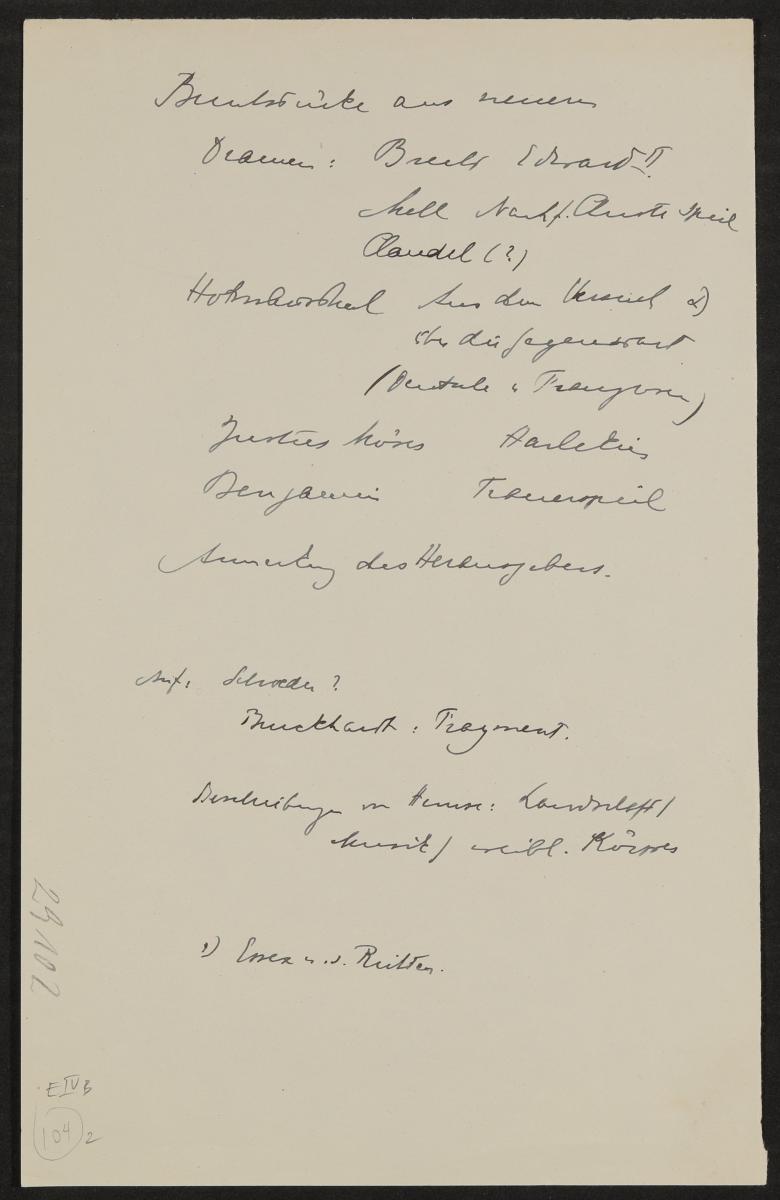 Bruchstücke aus neuern
Dramen: Brecht Edward II.
Mell Nachf. Christi Spiel
Claudel (?)
Hofmannsthal Aus dem Versuch 2)
über die Gegenwart
(Deutsche u Franzosen)
Justus Möser Harlekin
Benjamin Trauerspiel
Anmerkung des Herausgebers.
Auf: Schroeder?
Burckhardt: Fragment.
Beschreibungen von Heinse: Landschaft/
Musik/ weibl. Körper
1) Essex u. s. Richter.
29102
E IV B
104 2